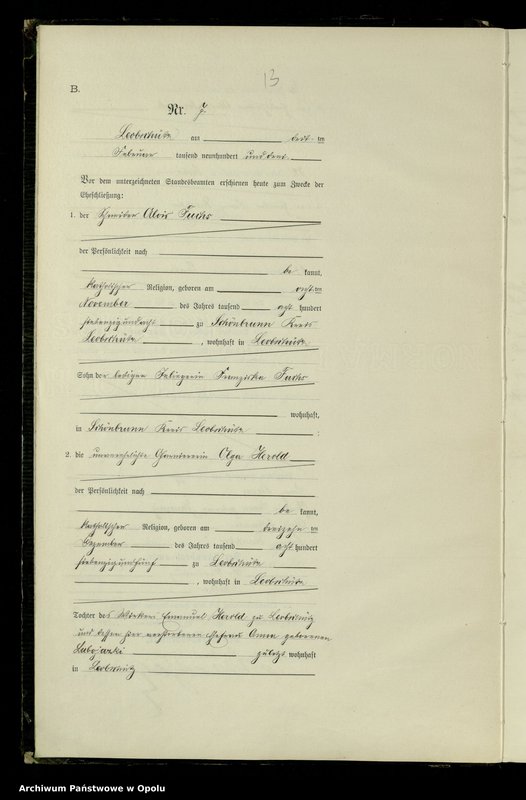 13
B.
Nr. 7
Leobschütz am ten
Februar tausend neunhundert und drei
Vor dem unterzeichneten Standesbeamten erschienen heute zum Zwecke der
Eheschließung:
1. der Schneider Alois Fuchs
der Persönlichkeit nach
be kannt,
katholischer Religion, geboren am acht ten
November des Jahres tausend acht hundert
siebenzig und acht zu Schönbrunn Kreis
Leobschütz, wohnhaft in Leobschütz
Sohn der ledigen Franziska Fuchs
wohnhaft,
in Schönbrunn Kreis Leobschütz;
2. die unverehelichte Olga Herold
der Persönlichkeit nach
be kannt,
katholischer Religion, geboren am dreizehn ten
Dezember des Jahres tausend acht hundert
siebenzig und fünf zu Leobschütz
, wohnhaft in Leobschütz
Tochter des Emanuel Herold zu Leobschütz
und dessen verstorbenen Ehefrau Anna geborenen
zuletzt wohnhaft
in Leobschütz
Archiwum Państwowe w Opolu